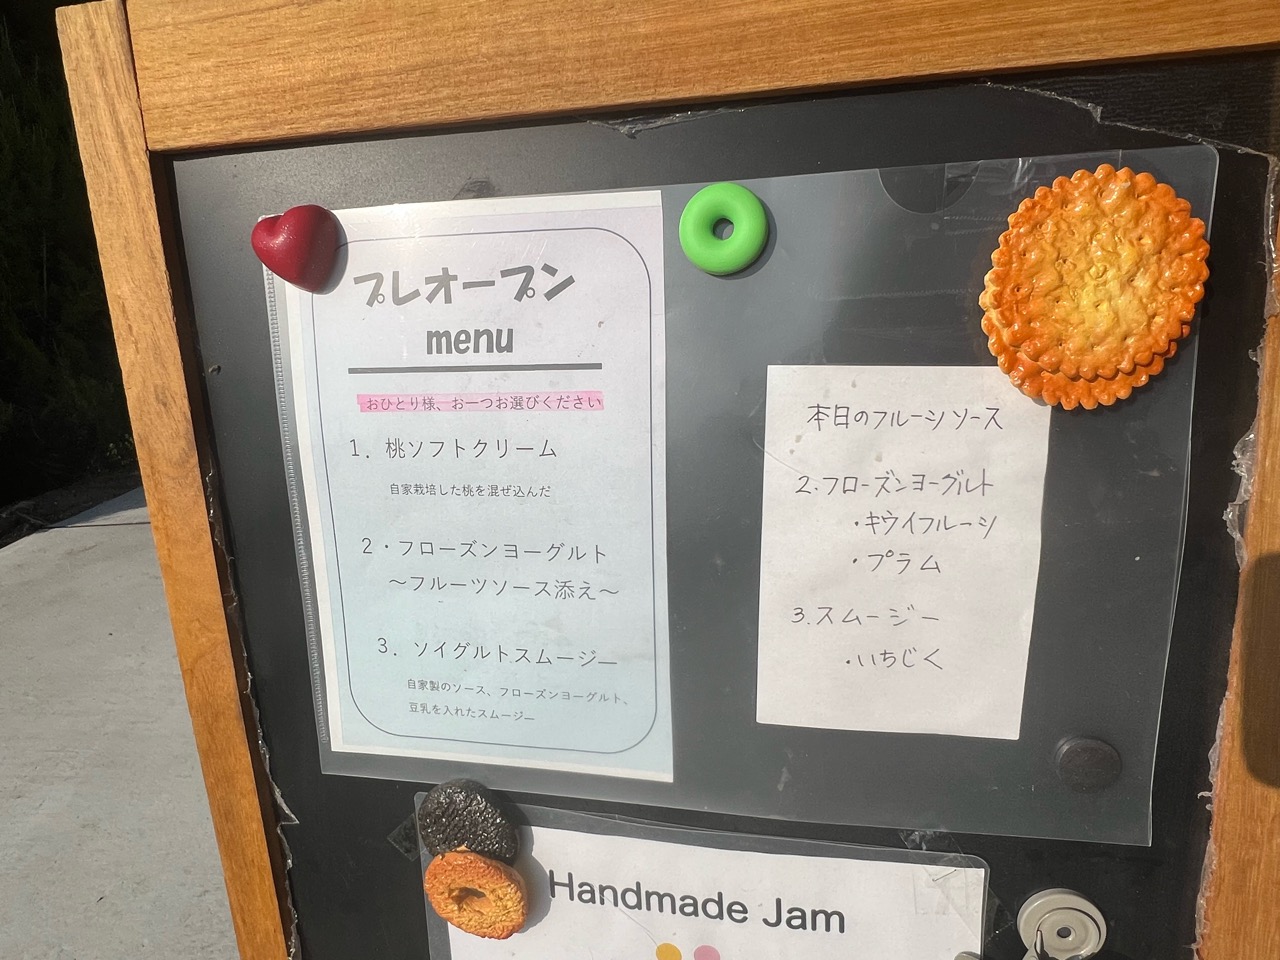 プレオープン
menu
おひとり様、お一つお選びください
1．桃ソフトクリーム
自家栽培した桃を混ぜ込んだ
2・フローズンヨーグルト
～フルーツソース添え～
3．ソイグルトスムージー
自家製のソース、フローズンヨーグルト、
豆乳を入れたスムージー
本日のフルーツソース
2.フローズンヨーグルト
・キウイフルーツ
・プラム
3.スムージー
・いちじく
Handmade Jam